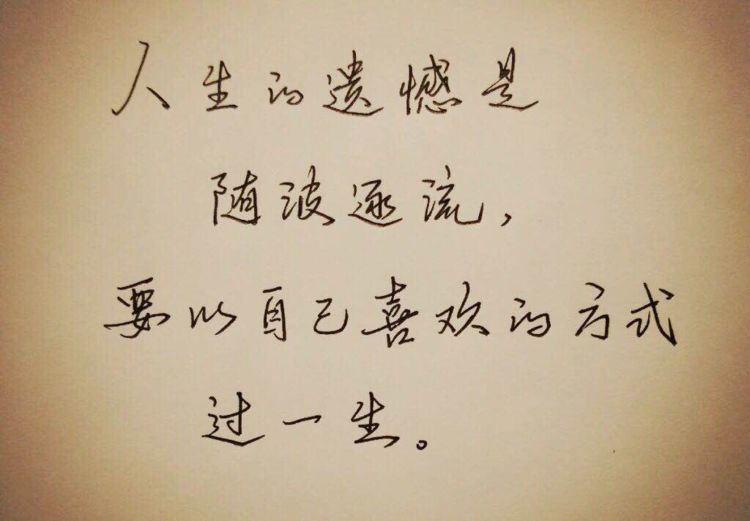 人生的遗憾是
随波逐流，
要以自己喜欢的方式
过一生。